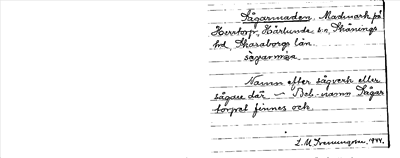 Sågarmaden. Madmark på
Herrtorp, Härlunda sn, Skånings
hd, Skaraborgs län.
sågarmåa
Namn efter sågverk eller
sågare där – Beb.-namn Sågar
torpet finnes ock.
L. M. 1944.